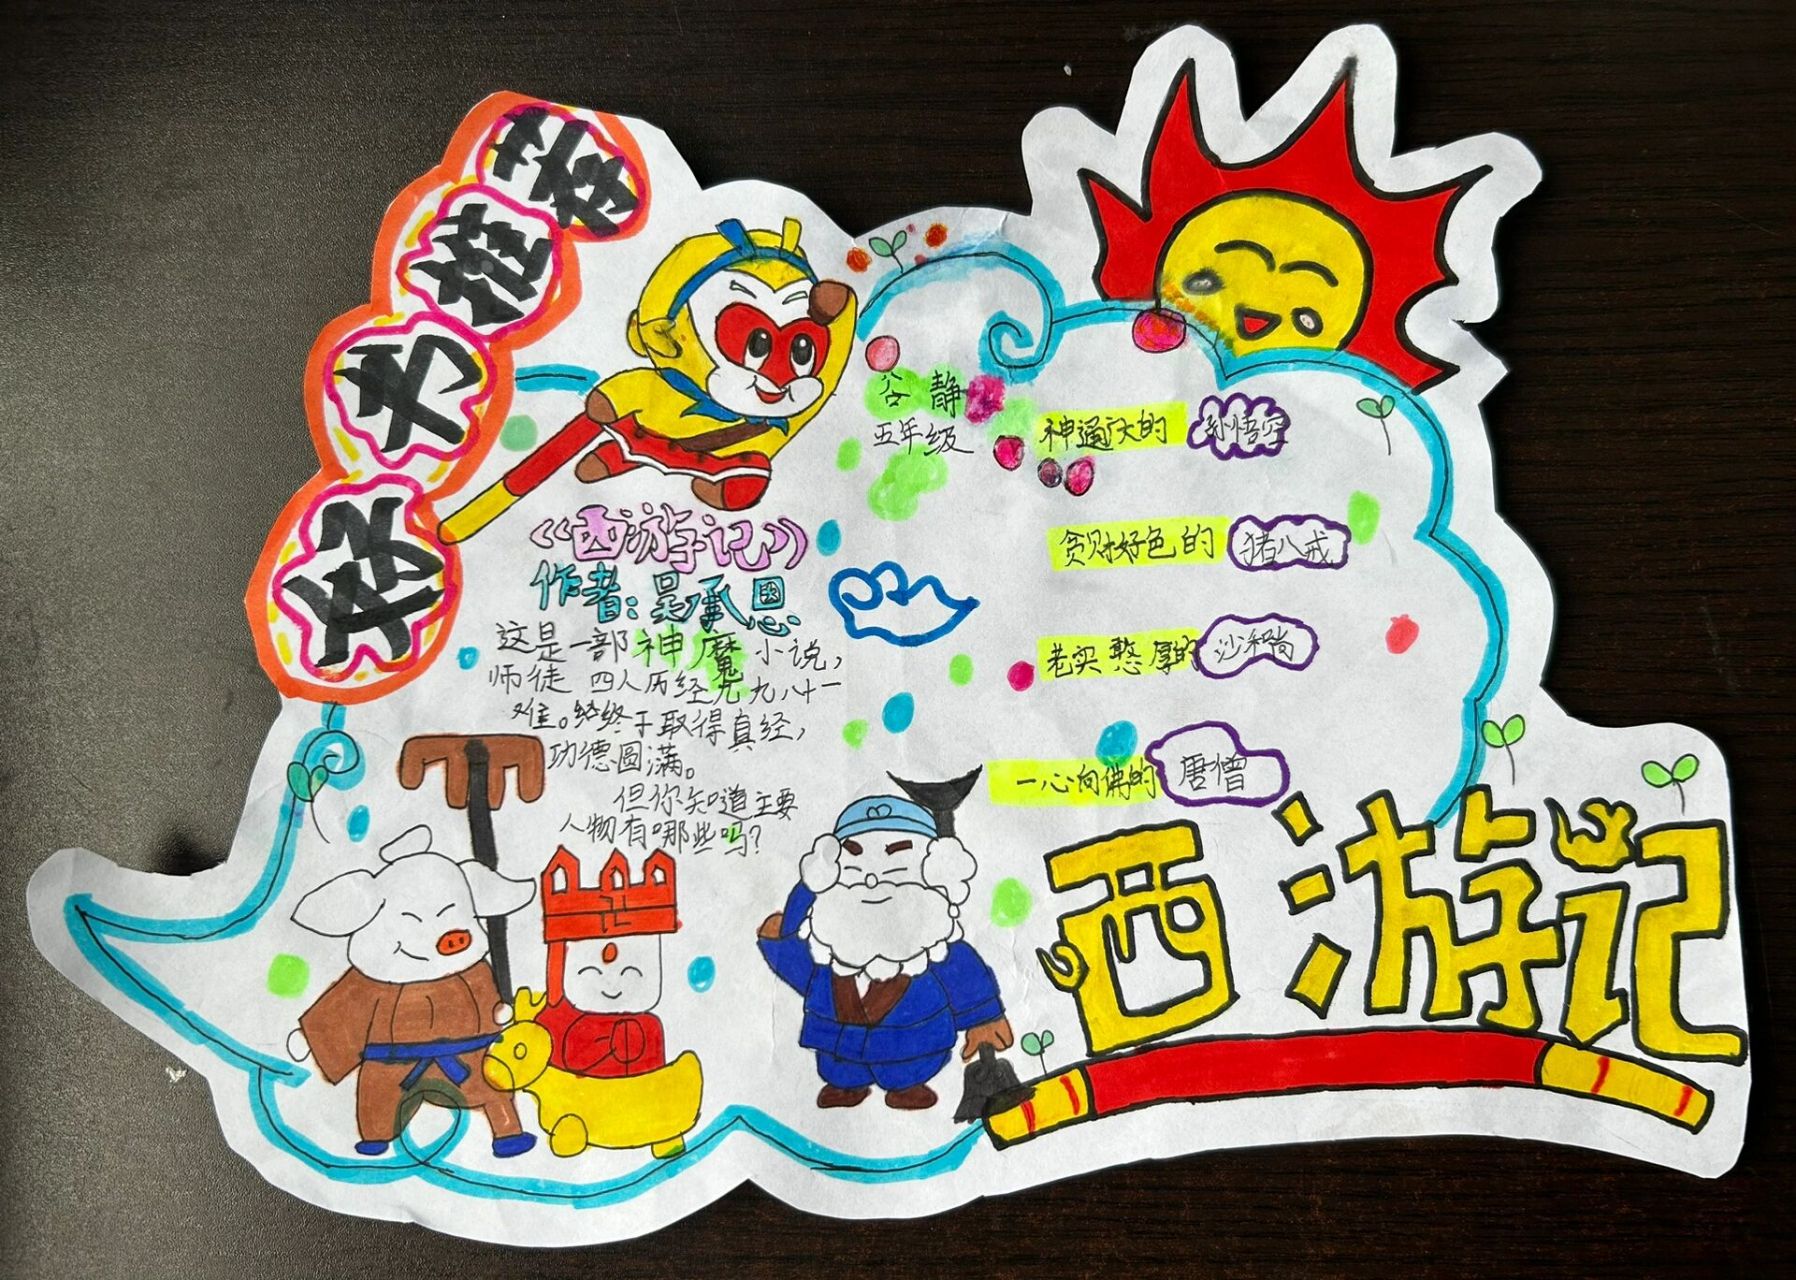 好书推荐
谷静
五年级
《西游记》
作者：吴承恩
这是一部神魔小说，
师徒四人历经九九八十一
难。终终于取得真经，
功德圆满。
但你知道主要
人物有哪些吗？
神通广大的 孙悟空
贪财好色的 猪八戒
老实憨厚的 沙和尚
一心向佛的 唐僧
西游记